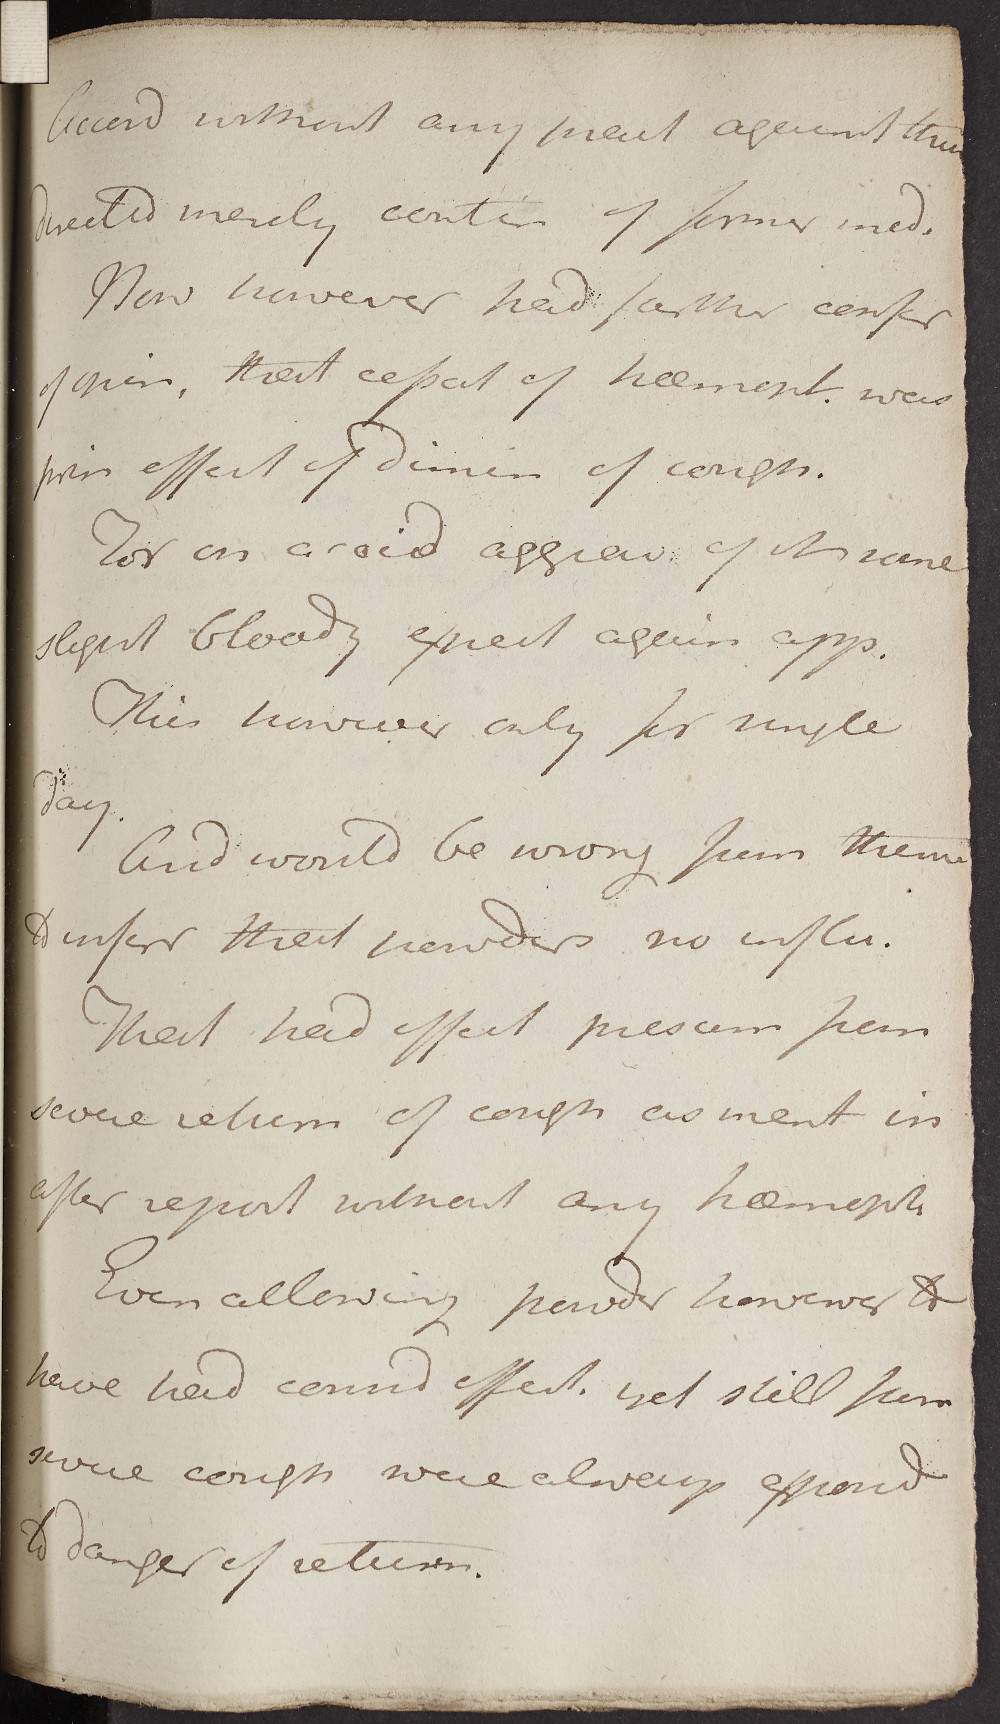 Accord without any pract against this
directed merely contin of former med.
Now however had farther confir
of opin, that cessat of hæmopt. was
prin effect of dimin of cough.
For on accid aggrav. of it some
slight bloody expect again app.
This however only for single
day.
And would be wrong from thence
to infer that powders no influ.
That had effect presum from
severe return of cough as ment in
after report without any hæmopt.
Even allowing powder however to
have had consid effect. yet still from
severe cough were always exposed
to danger of return.